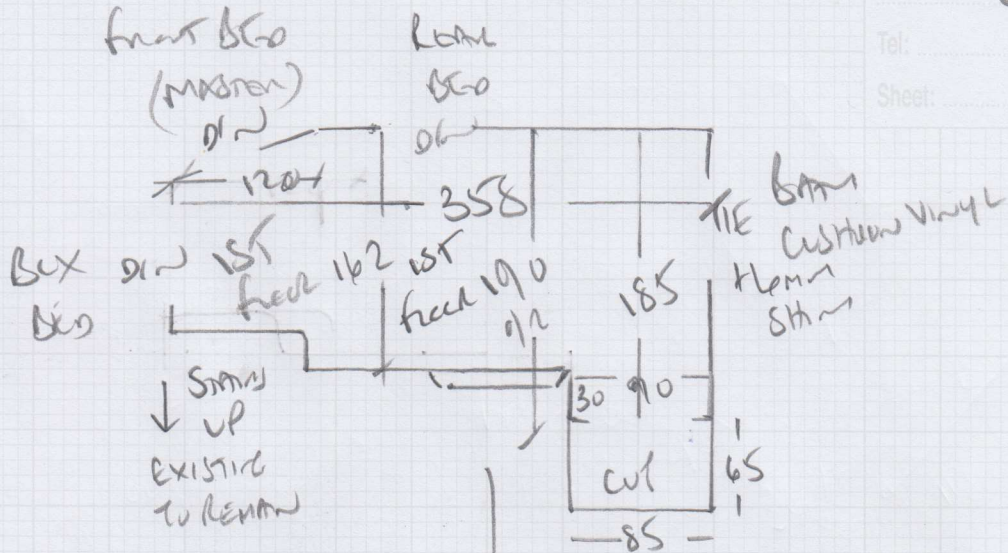 Tel:
Sheet:
FRONT BED
(MASTER)
D/N
REAR
BED
D/N
120+
358
T/E
BATH
CUSHION VINYL
BOX
BED
D/N
1ST
FLOOR
162
1ST
FLOOR
190
185
STAIRS
UP
EXISTING
TO REMAIN
30
90
CUT
65
85